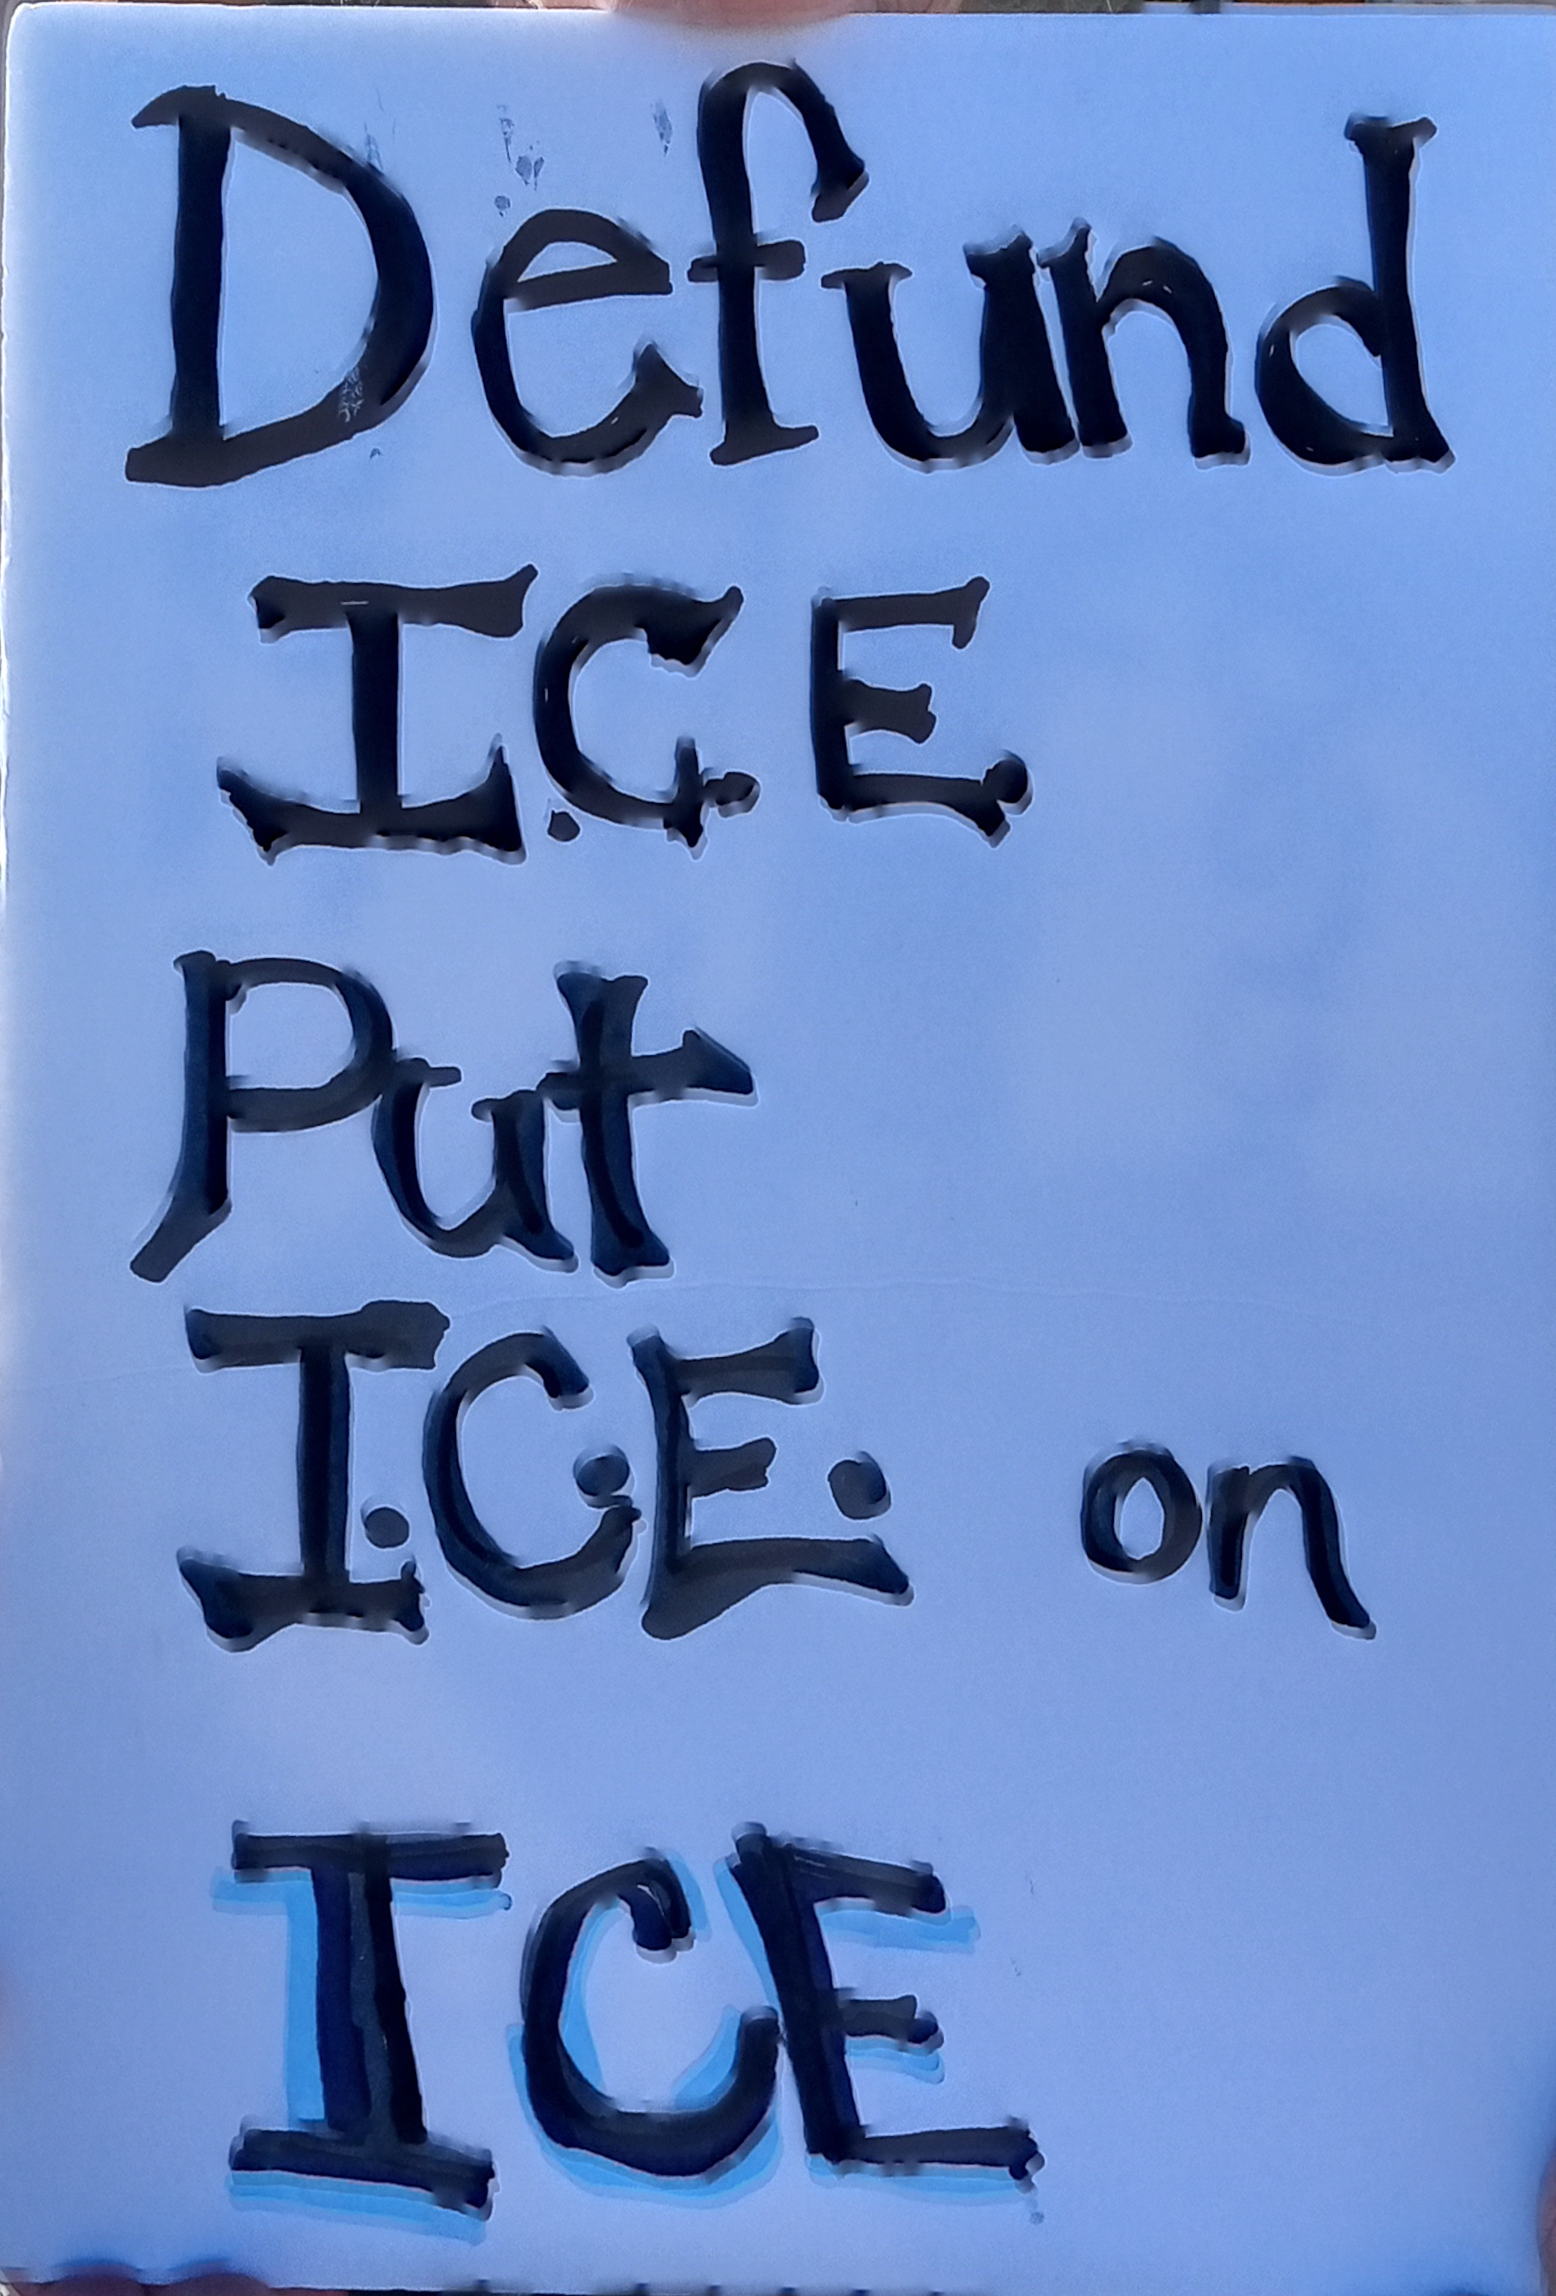 Defund
I.C.E
Put
I.C.E. on
ICE